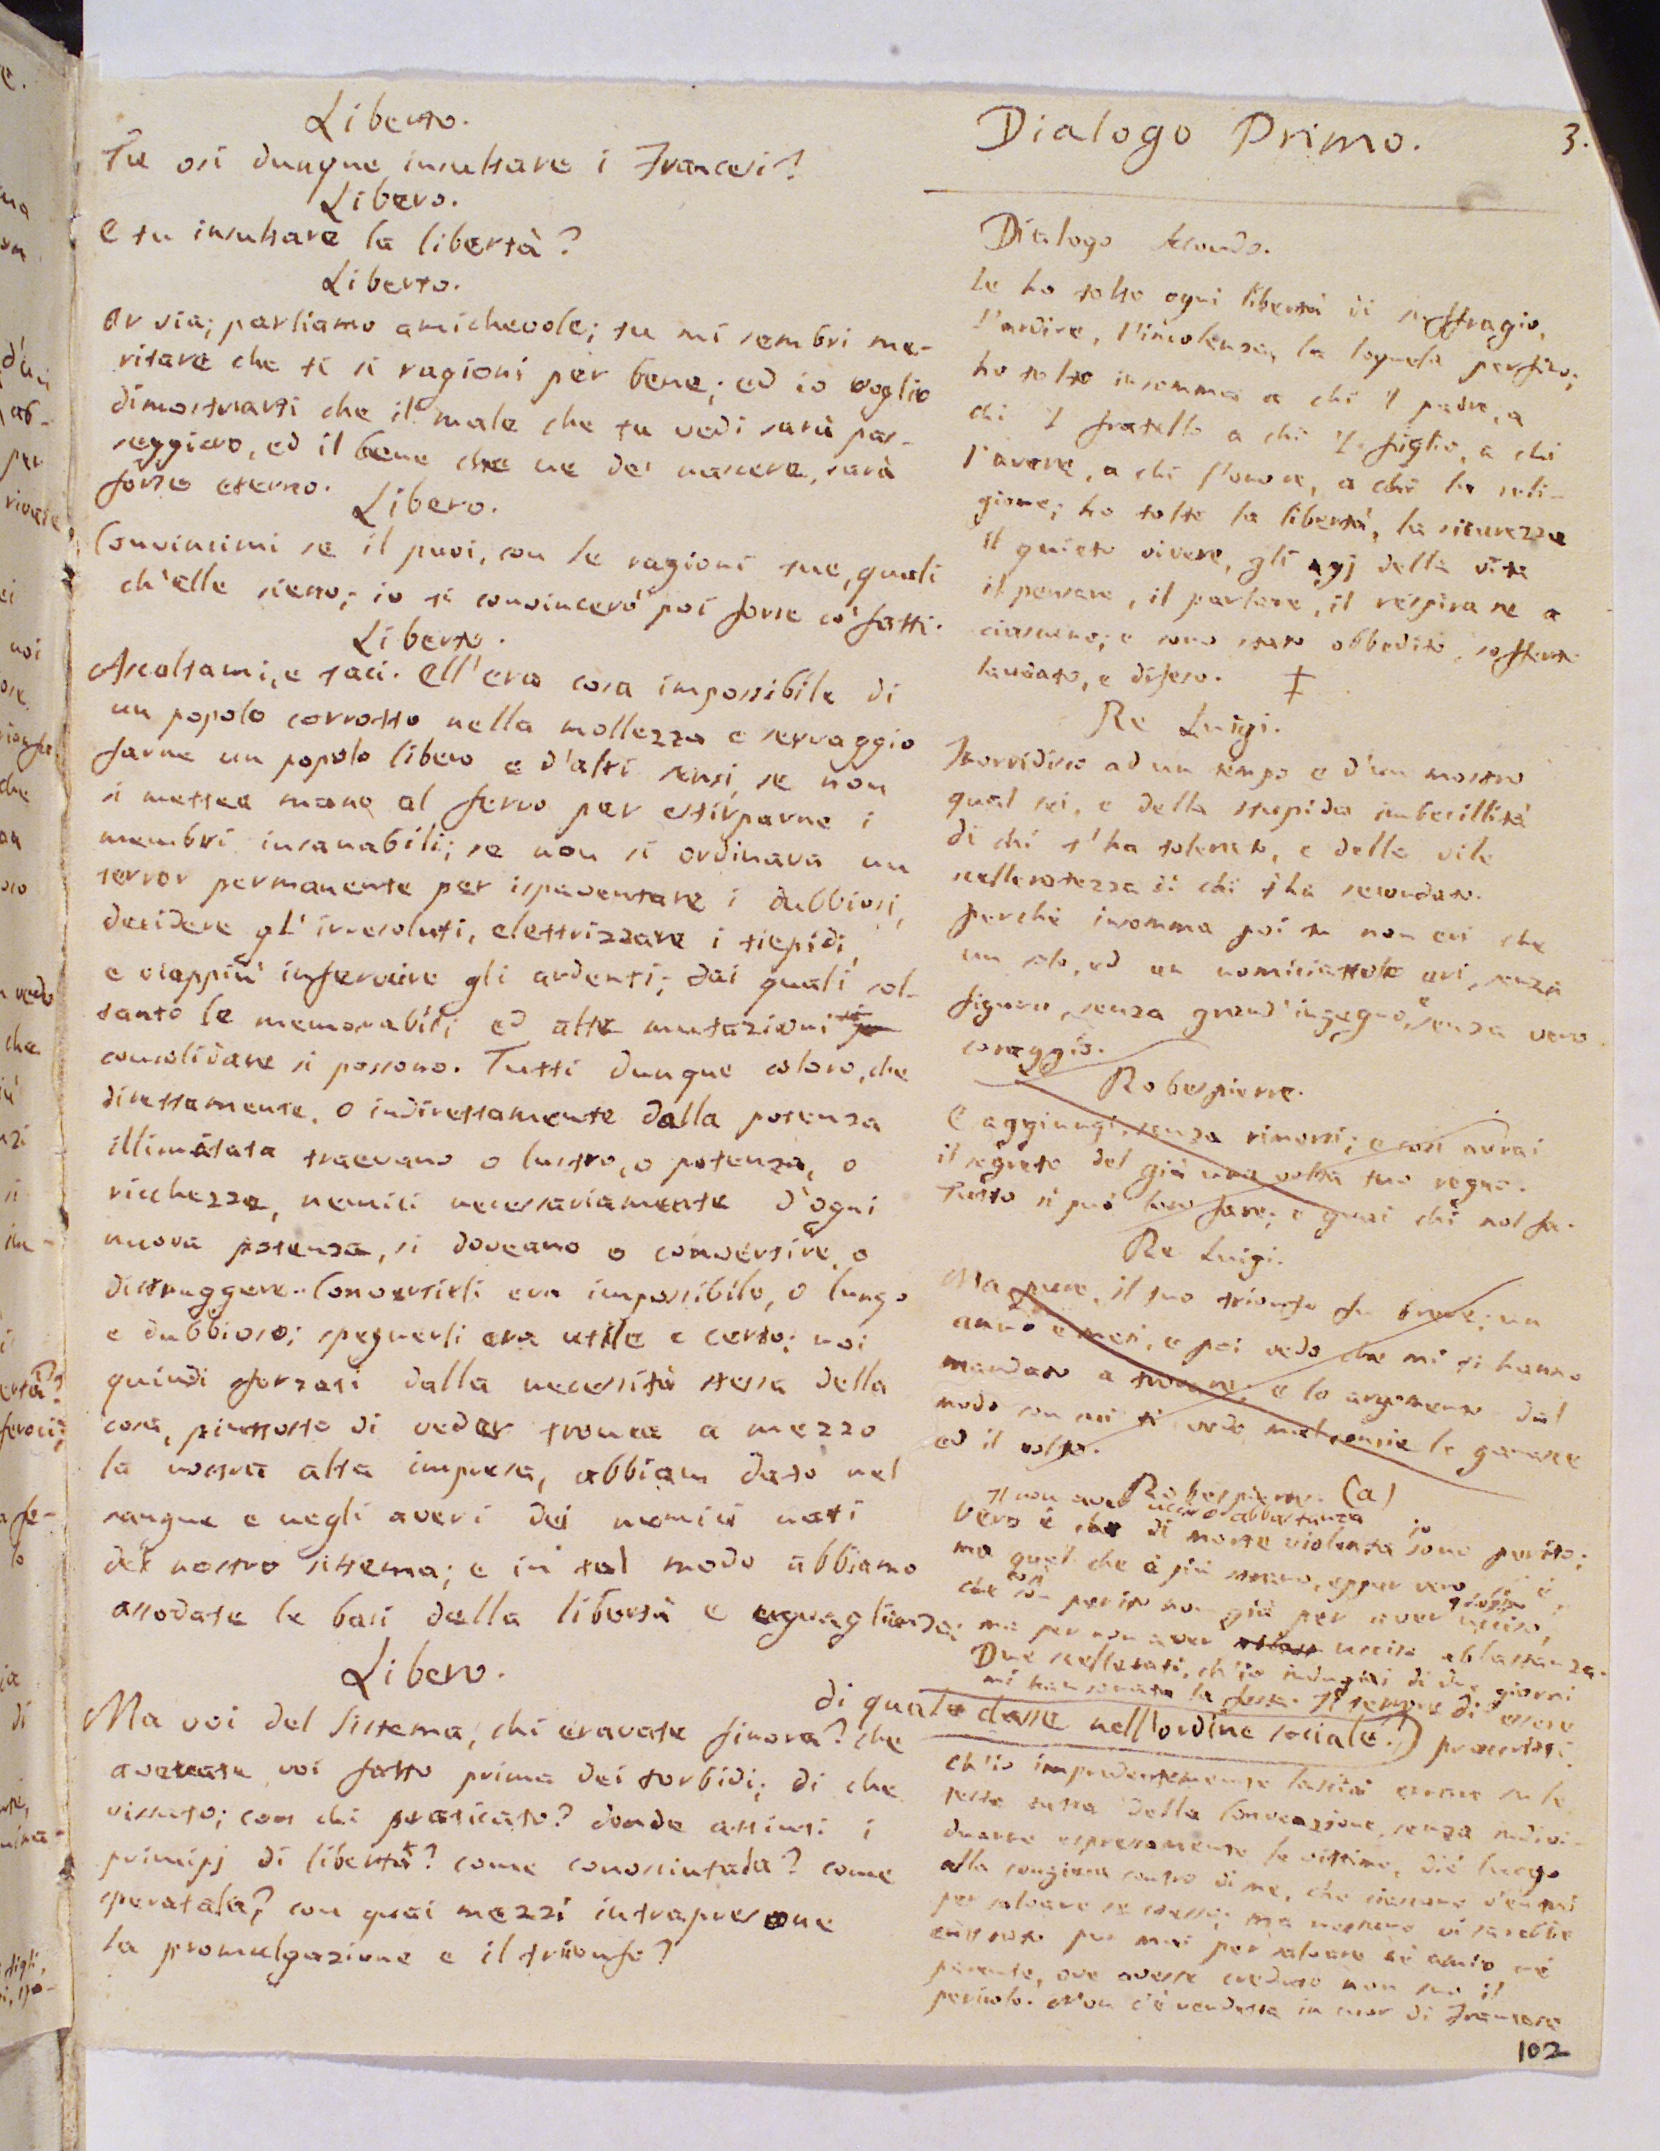 Liberto.
Tu osi dunque insultare i Francesi?
Libero.
E tu insultare la libertà?
Liberto.
Or via; parliamo amichevole; tu mi sembri me-
ritare che ti si ragioni per bene; ed io voglio
dimostrarti che il male che tu vedi sarà pas-
seggiero, ed il bene che ne dee nascere, sarà
forse eterno.
Libero.
Convincimi se il puoi, con le ragioni tue, quali
ch'elle sieno; io ti convincerò poi forse co' fatti.
Liberto.
Ascoltami, e taci. Ell'era cosa impossibile di
un popolo corrotto nella mollezza e servaggio
farne un popolo libero e d'alti sensi, se non
si mettea mano al ferro per estirparne i
membri insanabili; se non si ordinava un
terror permanente per ispaventare i dubbiosi,
decidere gl'irresoluti, elettrizzare i tiepidi,
e viappiù infervire gli ardenti; dai quali sol-
tanto le memorabili ed alte mutazioni
consolidare si possono. Tutti dunque coloro, che
direttamente, o indirettamente dalla potenza
illimitata traevano o lustro, o potenza, o
ricchezza, nemici necessariamente d'ogni
nuova potenza, si doveano o convertire, o
distruggere. Convertirli era impossibile, o lungo
e dubbioso; spegnerli era utile e certo; noi
quindi sforzati dalla necessità stessa della
cosa, piuttosto di veder tronca a mezzo
la nostra alta impresa, abbiam dato nel
sangue e negli averi dei nemici nati
del nostro sistema; e in tal modo abbiamo
assodate le basi della libertà e eguaglianza.
Libero.
Ma voi del sistema, chi eravate finora? che
avevate voi fatto prima dei torbidi; di che
vissuto; con chi praticato? donde attinti i
principj di libertà? come conosciutala? come
speratala? con quai mezzi intrapresone
la promulgazione e il trionfo?
di quale classe nell'ordine sociale?
Dialogo Primo.
3.
Dialogo secondo.
Le ho tolto ogni libertà di suffragio,
l'ardire, l'insolenza, la loquela perfino;
ho tolto insomma a chi il padre, a
chi 'l fratello a chi 'l figlio, a chi
l'avere, a chi l'onore, a chi la reli-
gione; ho tolto la libertà, la sicurezza
il quieto vivere, gli agj della vita
il pensare, il parlare, il respirare a
ciascuno; e sono stato obbedito, sofferto
laudato, e difeso. ‡
Re Luigi.
Inorridisco ad un tempo e d'un mostro
qual sei, e della stupida imbecillità
di chi t'ha tolerato, e della vile
scelleratezza di chi t'ha secondato.
perchè insomma poi tu non eri che
un solo, ed un uomiciattolo eri, senza
figura, senza grand'ingegno, e senza vero
coraggio.
Robespierre.
E aggiungi, senza rimorsi; e così avrai
il segreto del già una volta tuo regno.
Tutto si può fare; e quasi chi nol fa.
Re Luigi.
Ma pure, il tuo trionfo fu breve; un
anno e mesi, e poi vedo che mi ti hanno
mandato a trovare; e lo argomento dal
modo con cui ti vedo malconcie le ganasce
ed il volto.
Robespierre. (a)
Il non aver ucciso abbastanza
Vero è che di morte violenta sono perito;
ma quel che è più strano, eppur vero, si è,
che così perito non già per aver ucciso,
ma per non aver ucciso abbastanza.
Due scellerati, ch'io indugiai di due giorni
mi han sonata la festa. Il temere di essere
proscritti
ch'io imprudentemente lasciai errare su le
teste tutta della Convenzione, senza indivi-
duarne espressamente le vittime, diè luogo
alla congiura contro di me, che ciascuno v'entrò
per salvare se stesso; ma nessuno vi sarebbe
entrato pur mai per salvare nè amico nè
parente, ove avesse creduto non suo il
pericolo. Non c'è vendetta in cuor di Francese
102